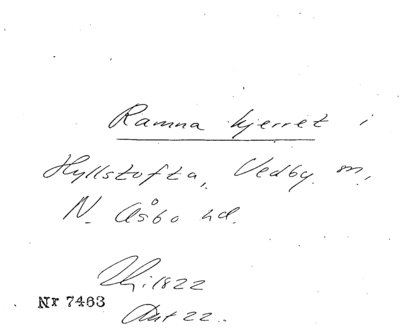 Ramna kjerret i
Hyllstofta, Vedby sn,
N. Åsbo hd.
1822
Nr 7463
22.